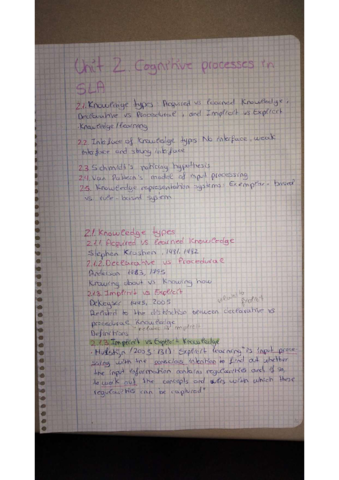 Unit 2. Cognitive processes in
SLA
2.1. Knowledge types: Acquired vs Learned Knowledge,
Declarative vs Procedural, and Implicit vs Explicit
Knowledge/learning
2.2. Interface of Knowledge types: No interface, weak
interface and strong interface
2.3. Schmidt's noticing hypothesis
2.4. Van Patten's model of input processing
2.5. Knowledge representation systems: Exemplar-based
vs rule-based system
2.1. Knowledge types
2.1.1. Acquired vs Learned Knowledge
Stephen Krashen 1981, 1982
2.1.2. Declarative vs Procedural
Anderson 1983, 1995
Knowing about vs Knowing how
2.1.3. Implicit vs Explicit
DeKeyser 2005
Related to the distinction between declarative vs
procedural Knowledge
Definitions
Implicit vs Explicit Knowledge
Hulstijn (2005: 131): Explicit learning "is input proce
ssing with the conscious intention to find out whether
the input information contains regularities and, if so
to work out the concepts and rules with which these
regularities can be captured"